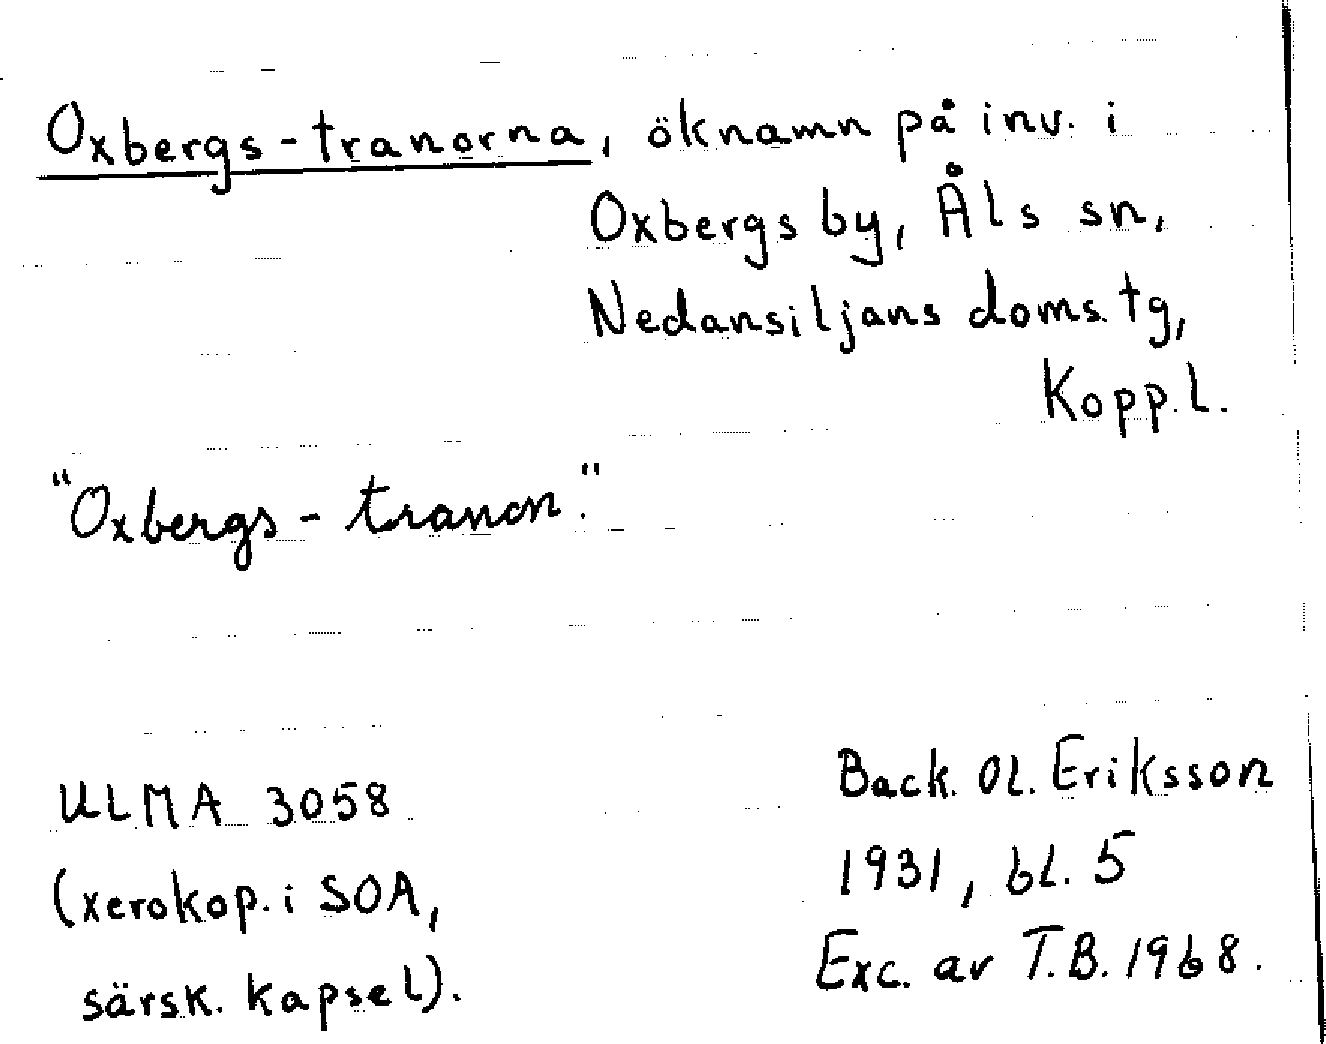 Oxbergs-tranorna, öknamn på inv. i
Oxbergs by, Åls sn,
Nedansiljans doms.tg,
Kopp.l.
"Oxbergs-tranon."
ULMA 3058
(xerokop. i SOA,
särsk. kapsel).
Back. Ol. Eriksson
1931, bl. 5
Exc. av T.B. 1968.